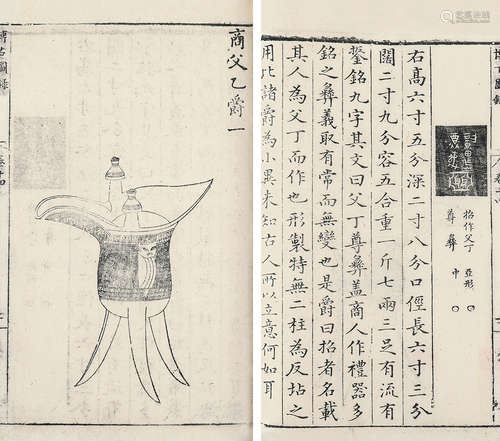 招作父丁 亞形
尊彝 中
右髙六寸五分深二寸八分口俓長六寸三分
闊二寸九分容五合重一斤七兩三足有流有
鋬銘九字其文曰父丁尊彝盖商人作禮器多
銘之彝義取有常而無變也是爵曰招者名載
其人為父丁而作也形製特無二柱為反坫之
用比諸爵為小異未知古人所以立意何如耳
商父乙爵一
博古圖錄